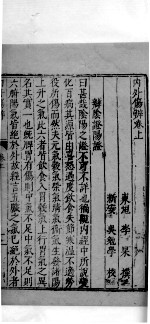 內外傷辨卷上
東垣 李杲 撰
新安 吳勉學 校
辨陰證陽證
曰甚哉陰陽之證不可不詳也徧觀內經中所說變
化百病其源皆由喜怒過度飲食失節寒溫不適勞
役所傷而然夫元氣穀氣榮氣清氣衛氣生發諸陽
上升之氣此六者皆飲食入胃穀氣上行胃氣之異
名其實一也既脾胃有傷則中氣不足中氣不足則
六腑陽氣皆絕於外故經言五臟之氣已絕於外者